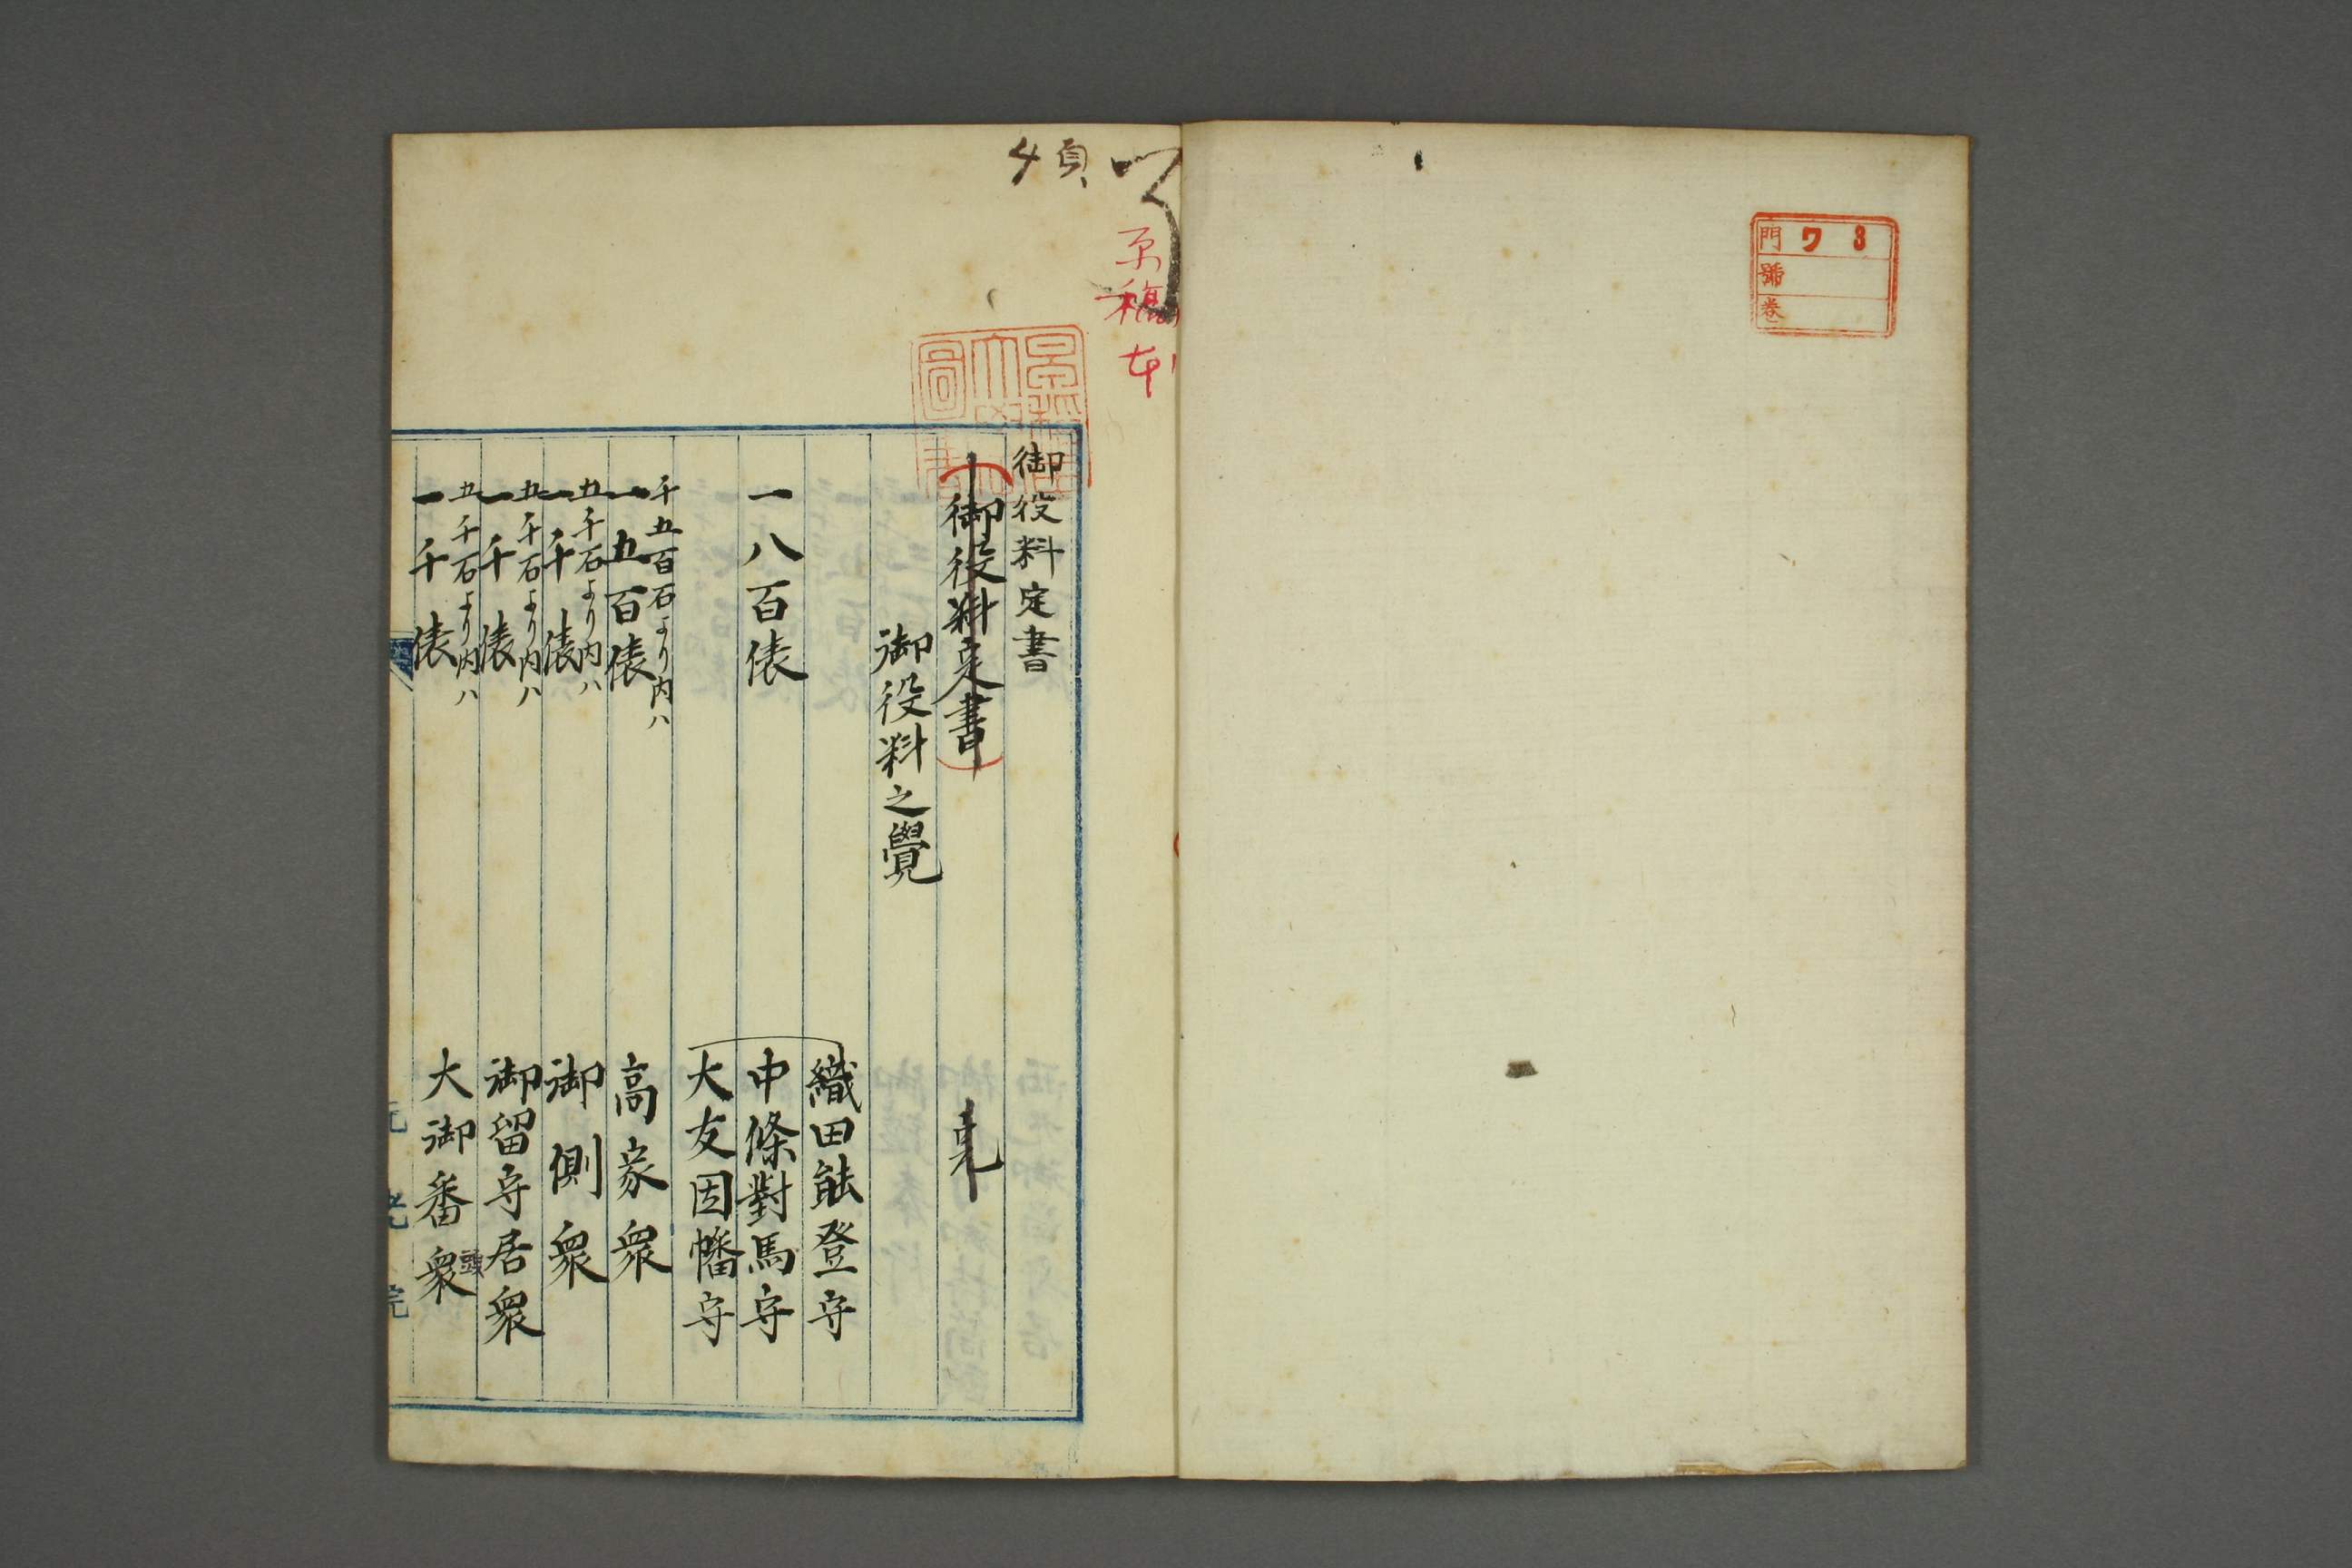 門 ワ 3
號
卷
原稿
御役料定書
御役料定書
完
御役料之覺
織田能登守
一八百俵 中條對馬守
大友因幡守
千五百石より内ハ
一五百俵 高家衆
五千石より内ハ
一千俵 御側衆
五千石より内ハ
一千俵 御留守居衆
五千石より内ハ
一千俵 大御番衆
頭
元老院